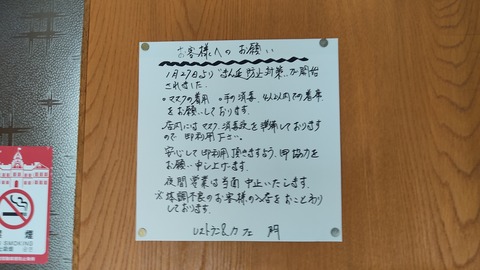 お客様へのお願い
1月27日より"まん延防止対策"が開始
されました.
○マスクの着用 ○手の消毒 4人以内での着席
をお願いしております.
店内にはマスク,消毒液を準備しておりますの
で 御利用下さい。
安心して御利用頂きますよう,御協力を
お願い申し上げます.
夜間営業は当面 中止いたします.
※体調不良のお客様の入店をおことわり
しております.
レストラン&カフェ
禁煙
NO SMOKING